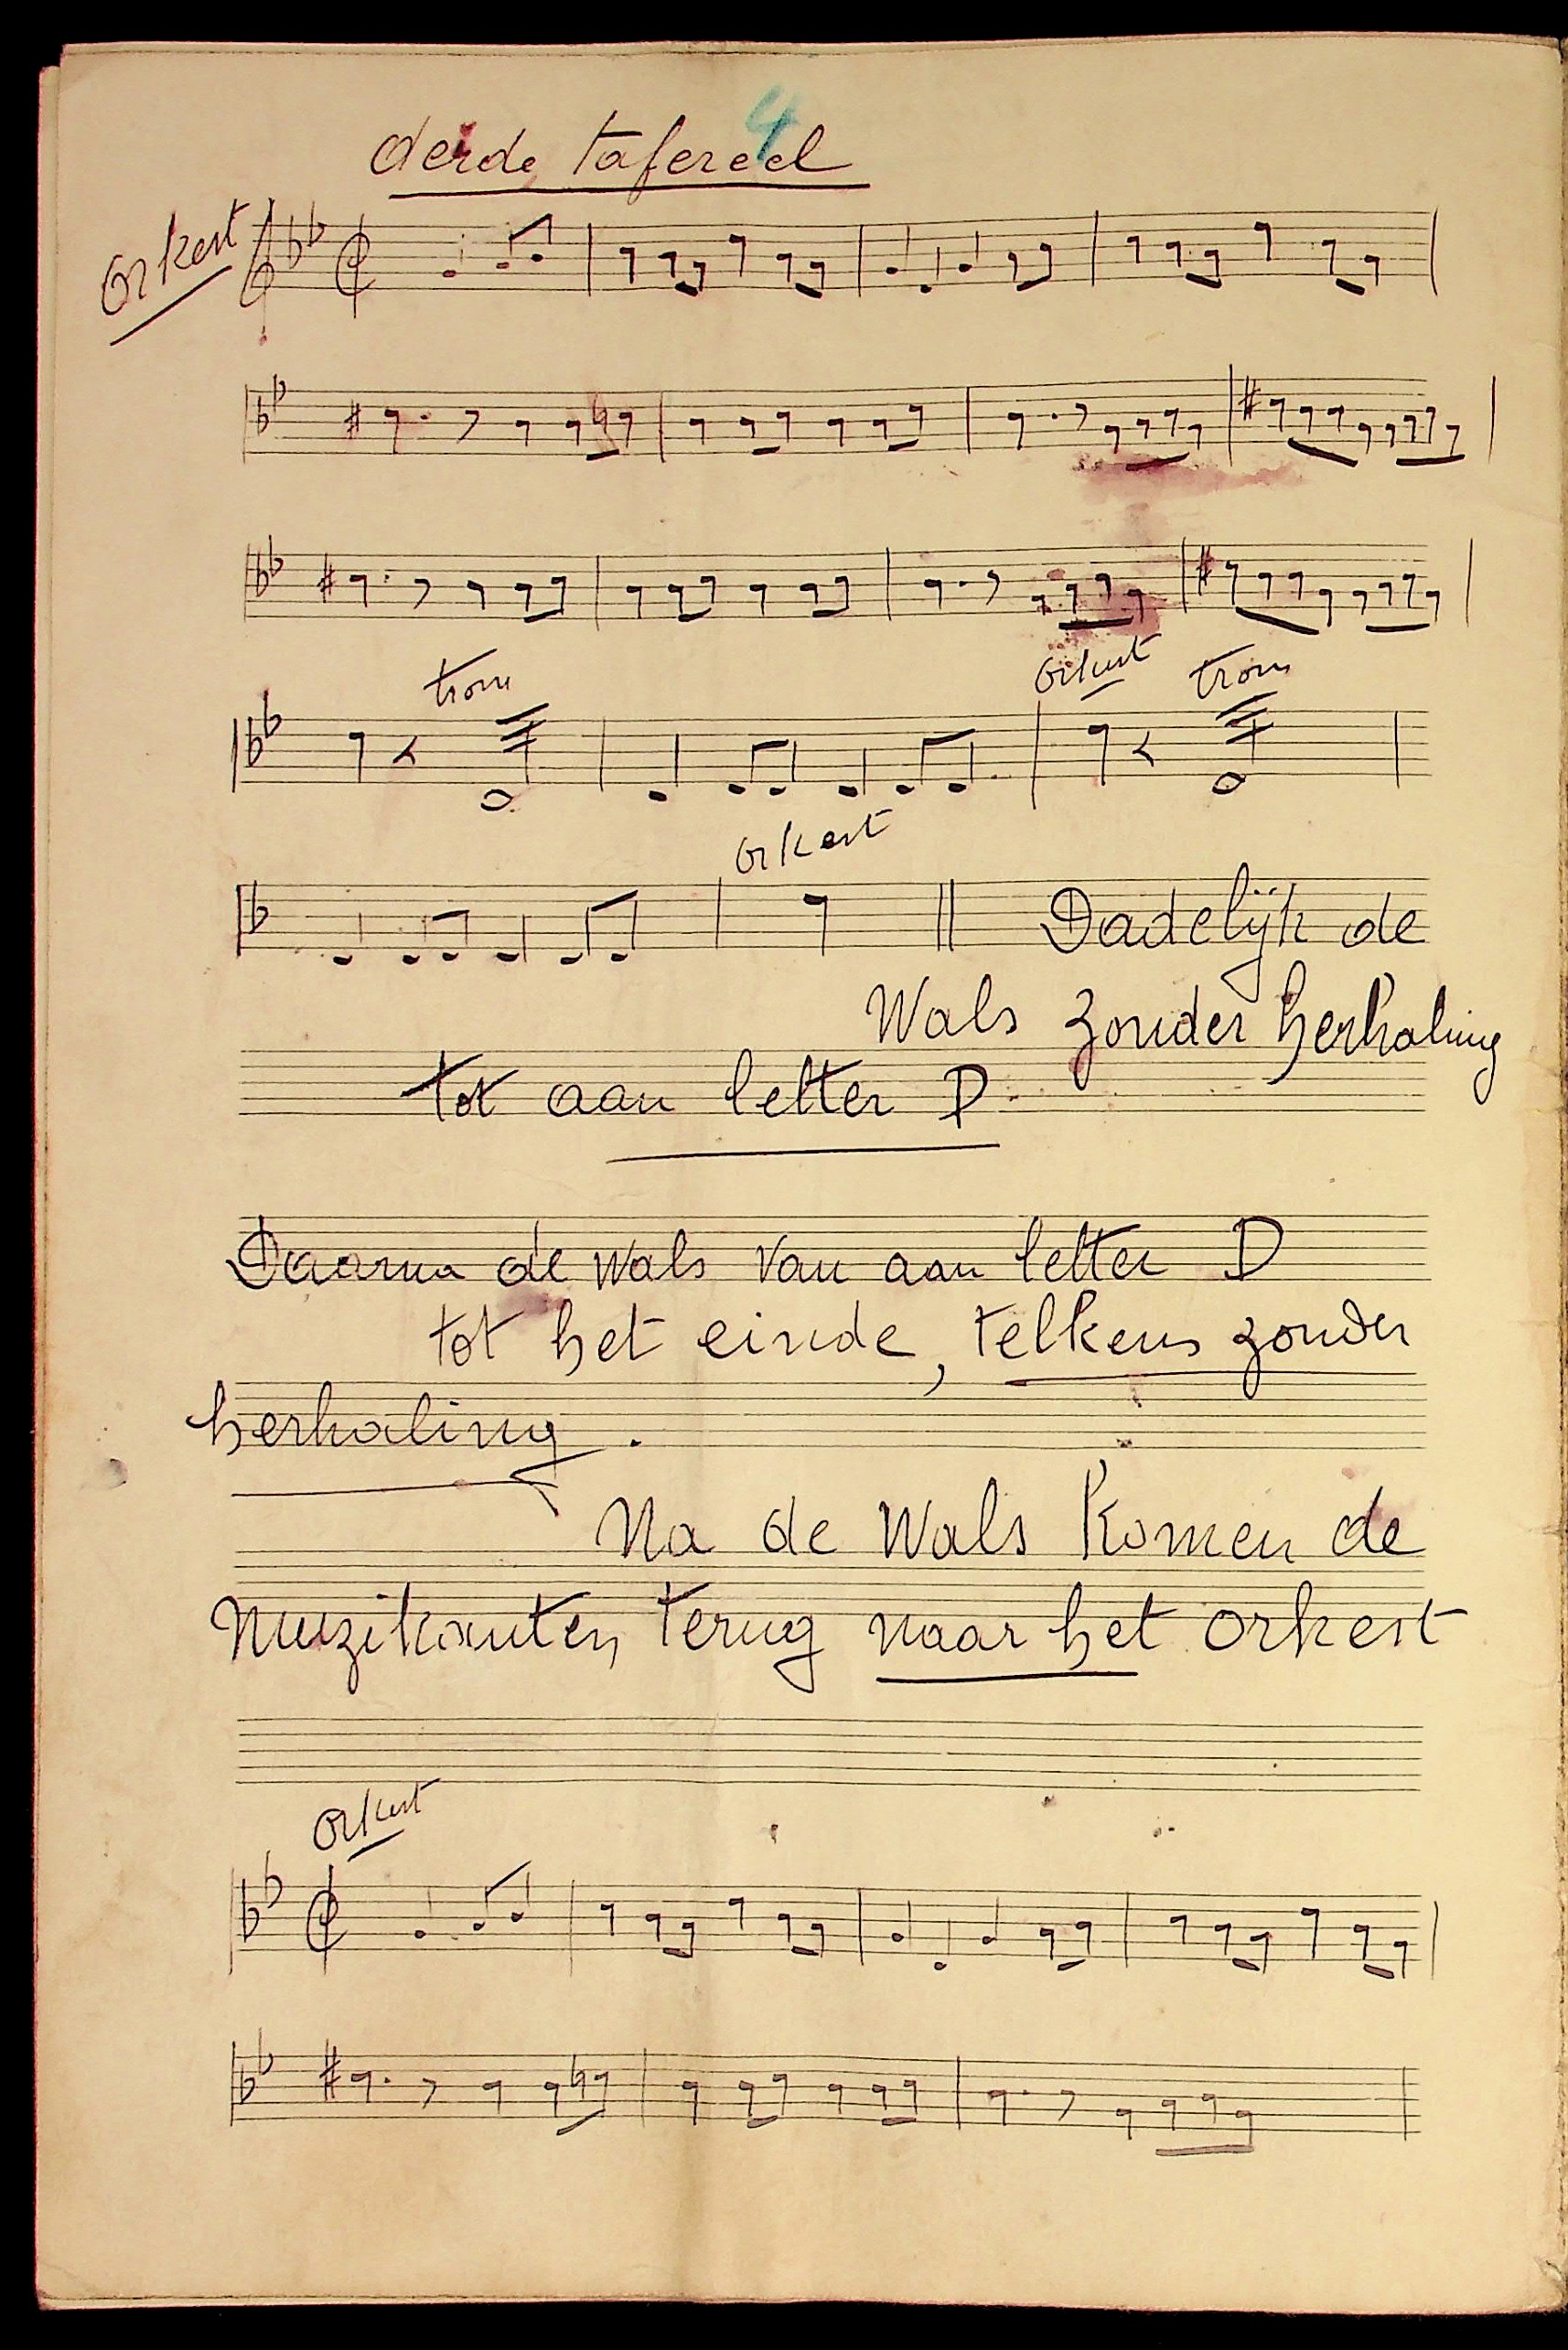 4
derde tafereel
Orkest
trom
Orkest
trom
Orkest
Dadelijk de
Wals zonder herhaling
tot aan letter D.
Daarna de Wals van aan letter D
tot het einde, telkens zonder
herhaling.
Na de Wals komen de
Muzikanten terug naar het orkest
Orkest